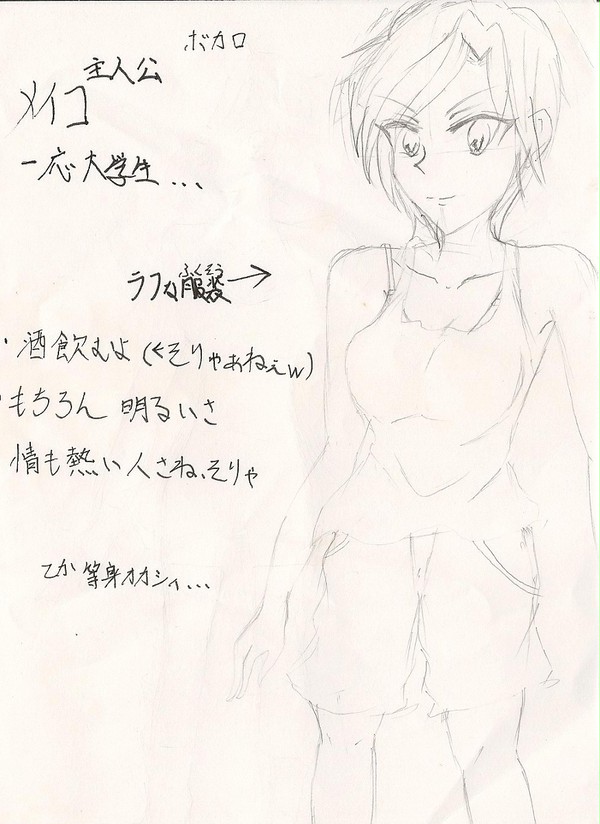 ボカロ
主人公
メイコ
一応大学生...
ふくそう
ラフな服装→
・酒飲むよ(←そりゃぁねぇw)
・もちろん 明るいさ
情も熱い人さね、そりゃ
てか 等身オカシィ...